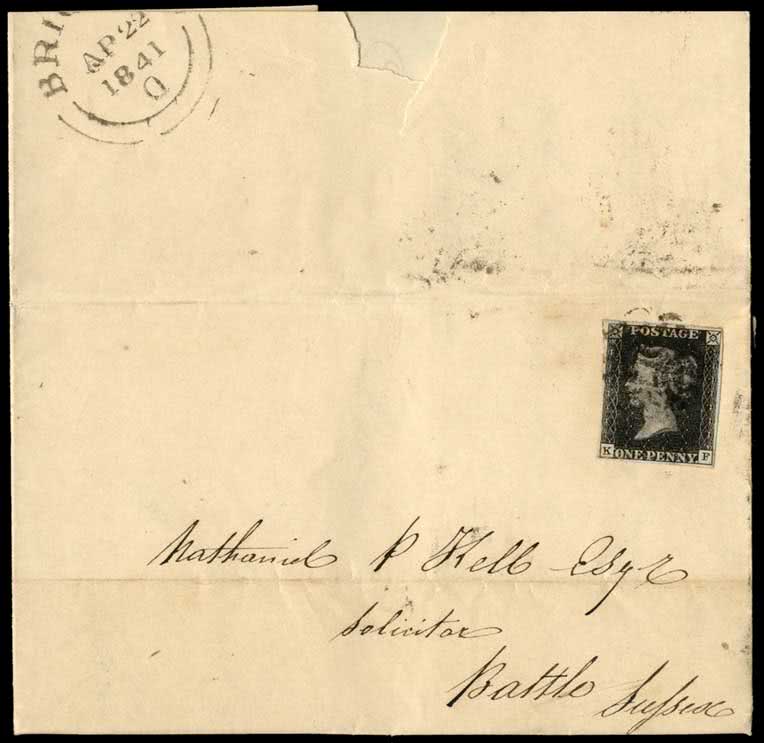 BRIG
AP 22
1841
POSTAGE
K ONE PENNY F
Nathaniel P Kell Esqr
Solicitor
Battle Sussex